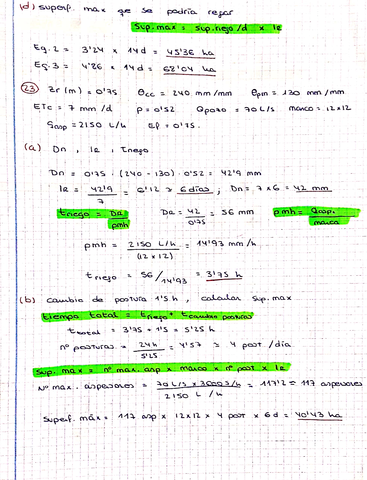 (d) superf. max que se podría regar
Sup.max = sup.riego/d x Ie
Eq. 2 = 3'24 x 14 d = 45'36 ha
Eq. 3 = 4'86 x 14 d = 68'04 ha
(23) Zr (m) = 0'75 θcc = 240 mm/mm θpm = 130 mm/mm
ETc = 7 mm/d P = 0'52 Qpozo = 70 L/s marco = 12x12
Qasp = 2150 L/h Ef = 0'75.
(a) Dn, Ie, triego
Dn = 0'75 · (240 - 130) · 0'52 = 42'9 mm
Ie = 42'9 / 7 = 6'12 ≈ 6 días ; Dn = 7 x 6 = 42 mm
triego = Da / pmh Da = 42 / 0'75 = 56 mm pmh = Qasp. / marco
pmh = 2150 L/h / (12 x 12) = 14'93 mm/h
triego = 56/14'93 = 3'75 h
(b) cambio de postura 1'5 h, calcular sup. max
tiempo total = triego + tcambio postura
ttotal = 3'75 + 1'5 = 5'25 h
nº posturas = 24h / 5'25 = 4'57 ≈ 4 post/día
Sup. max = nº max. asp x marco x nº post x Ie
Nº max. aspersores = 70 L/s x 3600 s/h / 2150 L/h = 117'2 ≈ 117 aspersores
Superf. máx = 117 asp x 12x12 x 4 post x 6 d = 40'43 ha